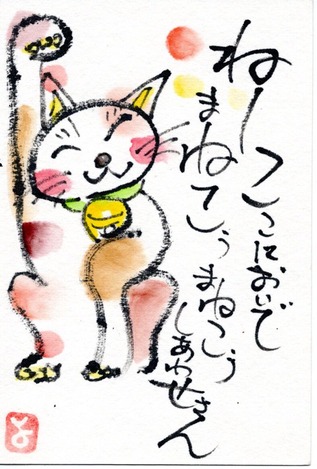 ねーここにおいで
まねこうまねこう
しあわせさん
よ